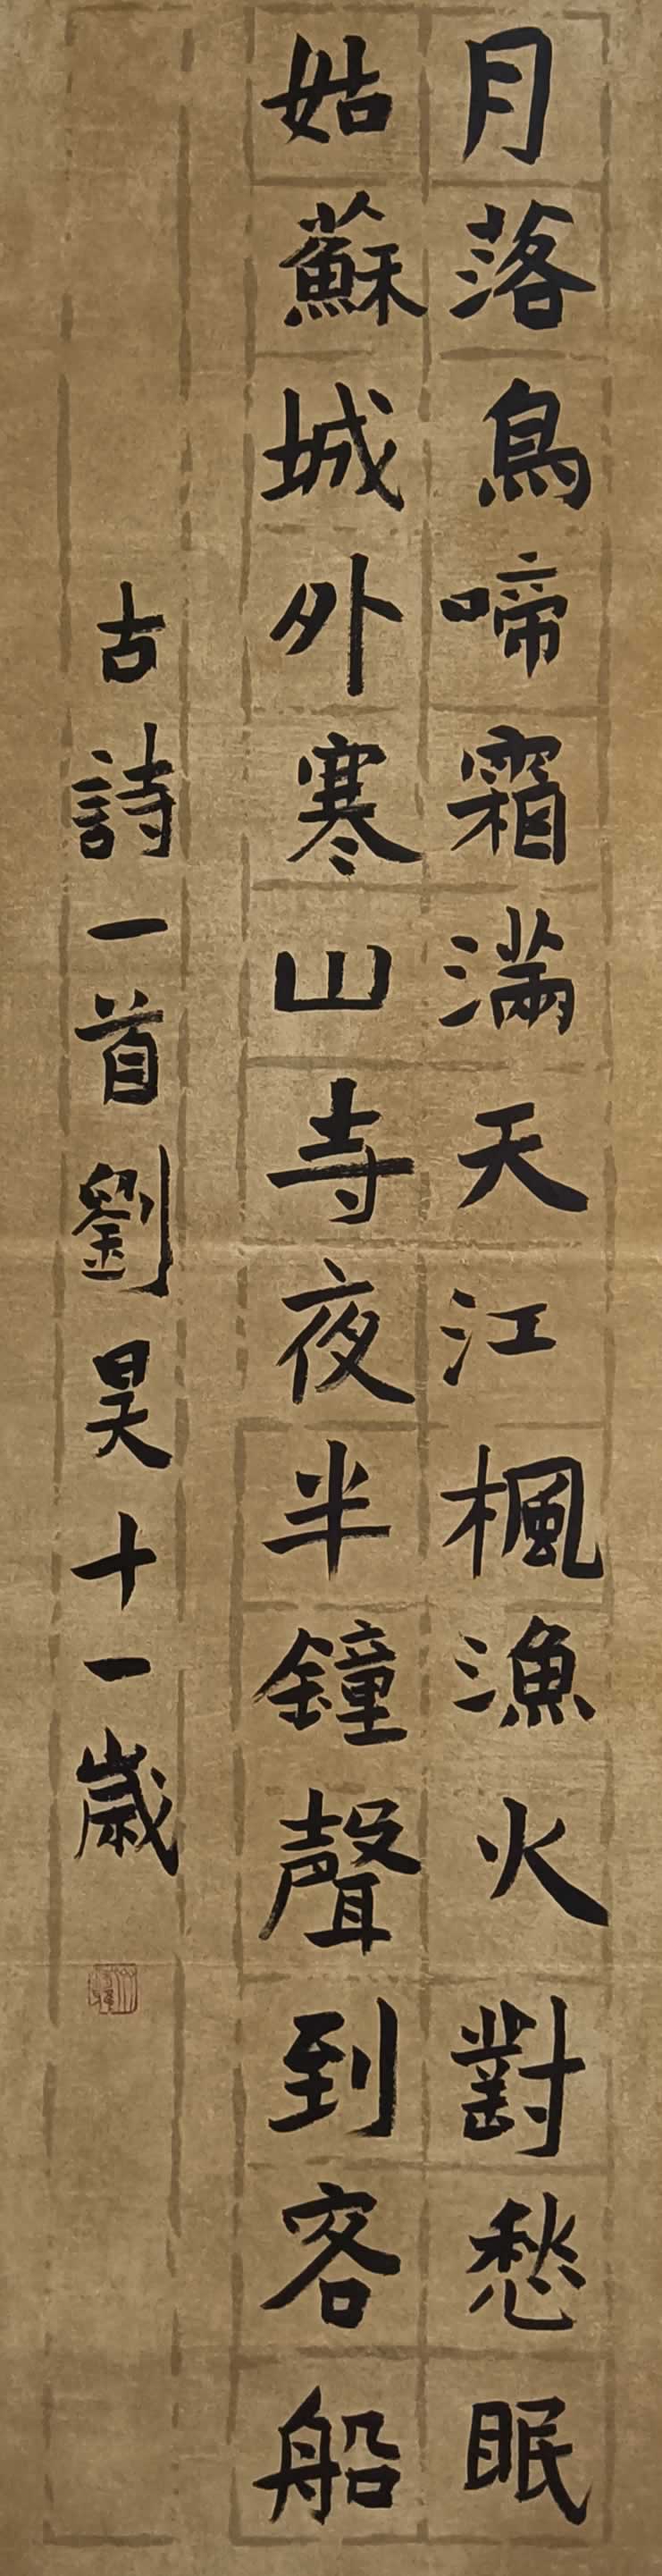 月落鳥啼霜滿天江楓漁火對愁眠
姑蘇城外寒山寺夜半鐘聲到客船
古詩一首劉昊十一歲